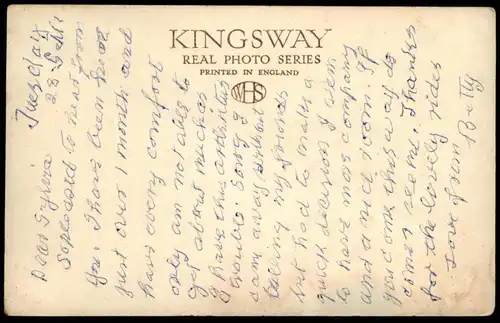 KINGSWAY
REAL PHOTO SERIES
PRINTED IN ENGLAND
WHS
Tuesday
Dear Sylvia
So pleased to hear from
you. I have been here
just over 1 month and
have every comfort
only am not able to
get about much as
I have this arthritis
trouble. Sorry I
came away without
telling my friends
but had to make a
quick decision of
to have more company
and a nice room. If
you come this way do
come & see me. Thanks
for the lovely rides
Love from Betty